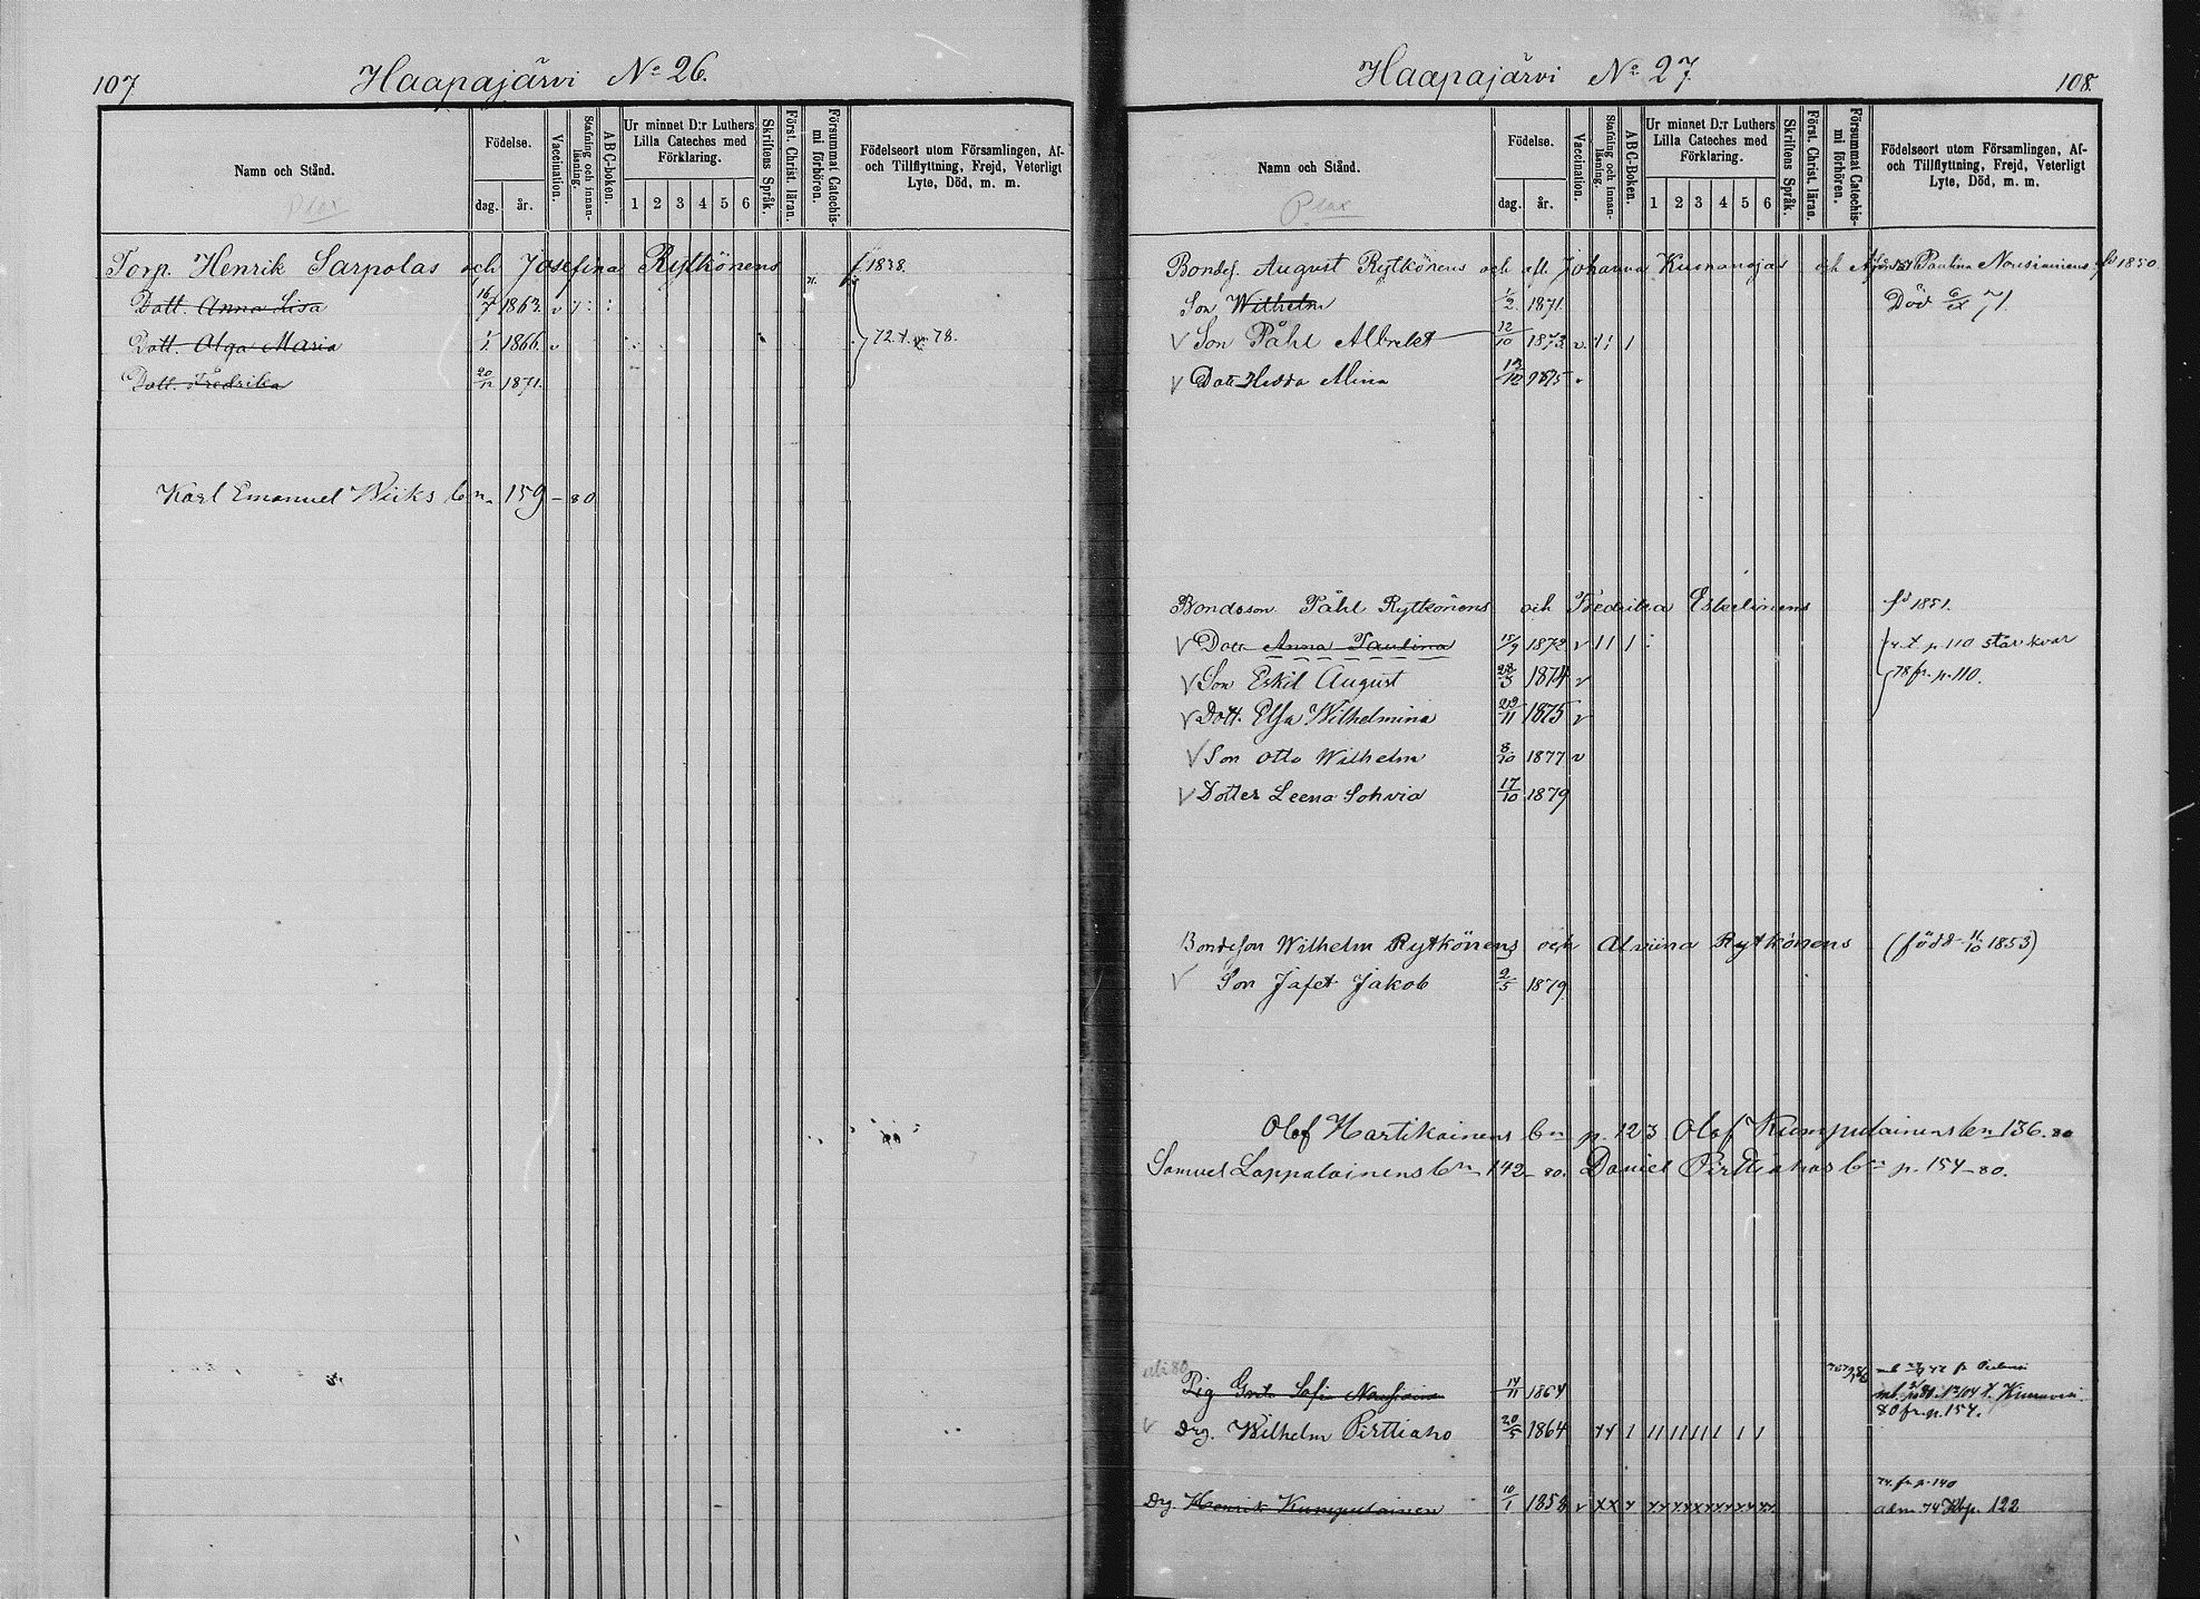 107
Haapajärvi No 26.
Namn och Stånd.
Födelse.
dag. år.
Vaccination.
Stafning och innan-läsning.
ABC-boken.
Ur minnet D:r Luthers Lilla Cateches med Förklaring.
1 2 3 4 5 6
Skriftens Språk.
Först. Christ. läran.
Försummat Catechis-mi förhören.
Födelseort utom Församlingen, Af- och Tillflyttning, Frejd, Veterligt Lyte, Död, m. m.
Torp. Henrik Sarpolas och Josefina Rytkönens f. 1838.
Dott. Anna Lisa 16/7 1863. v
Dott. Alga Maria 1/1 1866. v 72 t. p. 78.
Dott. Fredrika 20/12 1871.
Karl Emanuel Wiiks bn. 159-80
Haapajärvi No 27.
108.
Namn och Stånd.
Födelse.
dag. år.
Vaccination.
Stafning och innan-läsning.
ABC-Boken.
Ur minnet D:r Luthers Lilla Cateches med Förklaring.
1 2 3 4 5 6
Skriftens Språk.
Först. Christ. läran.
Försummat Catechis-mi förhören.
Födelseort utom Församlingen, Af- och Tillflyttning, Frejd, Veterligt Lyte, Död, m. m.
Bondes. August Rytkönens och afl. Johanna och Paulina Nousiainens fd 1850.
Son Wilhelm 1/2 1871. Död 71.
V Son Påhl Albrekt 12/10 1873 v.
V Dott Hedda Mina 13/12 1875
Bondeson Påhl Rytkönens och Fredrika Eskelinens fd 1851.
V Dott Anna Paulina 15/9 1872 v p. 110 står kvar
V Son Eskil August 28/3 1874 v 78 fr. p. 110.
V Dott. Elsa Wilhelmina 29/11 1875 v
V Son Otto Wilhelm 8/10 1877 v
V Dotter Leena Sohvia 17/10 1879
Bondeson Wilhelm Rytkönens och Alviina Rytkönens (född 11/10 1853)
V Son Jafet Jakob 2/5 1879
Olof Hartikainens bn p. 123 Olof Kumpulainens bn 136-80
Samuel Lappalainens bn 142-80. Daniel Pirttiahos bn p. 154-80.
Pig Greta Sofia 14/11 1864
80 fr. p. 154.
V Drg. Wilhelm Pirttiaho 20/5 1864
74. fr. p. 140
Drg. Henrik Kumpulainen 10/1 1858 v adm. 74 Kbp. 122